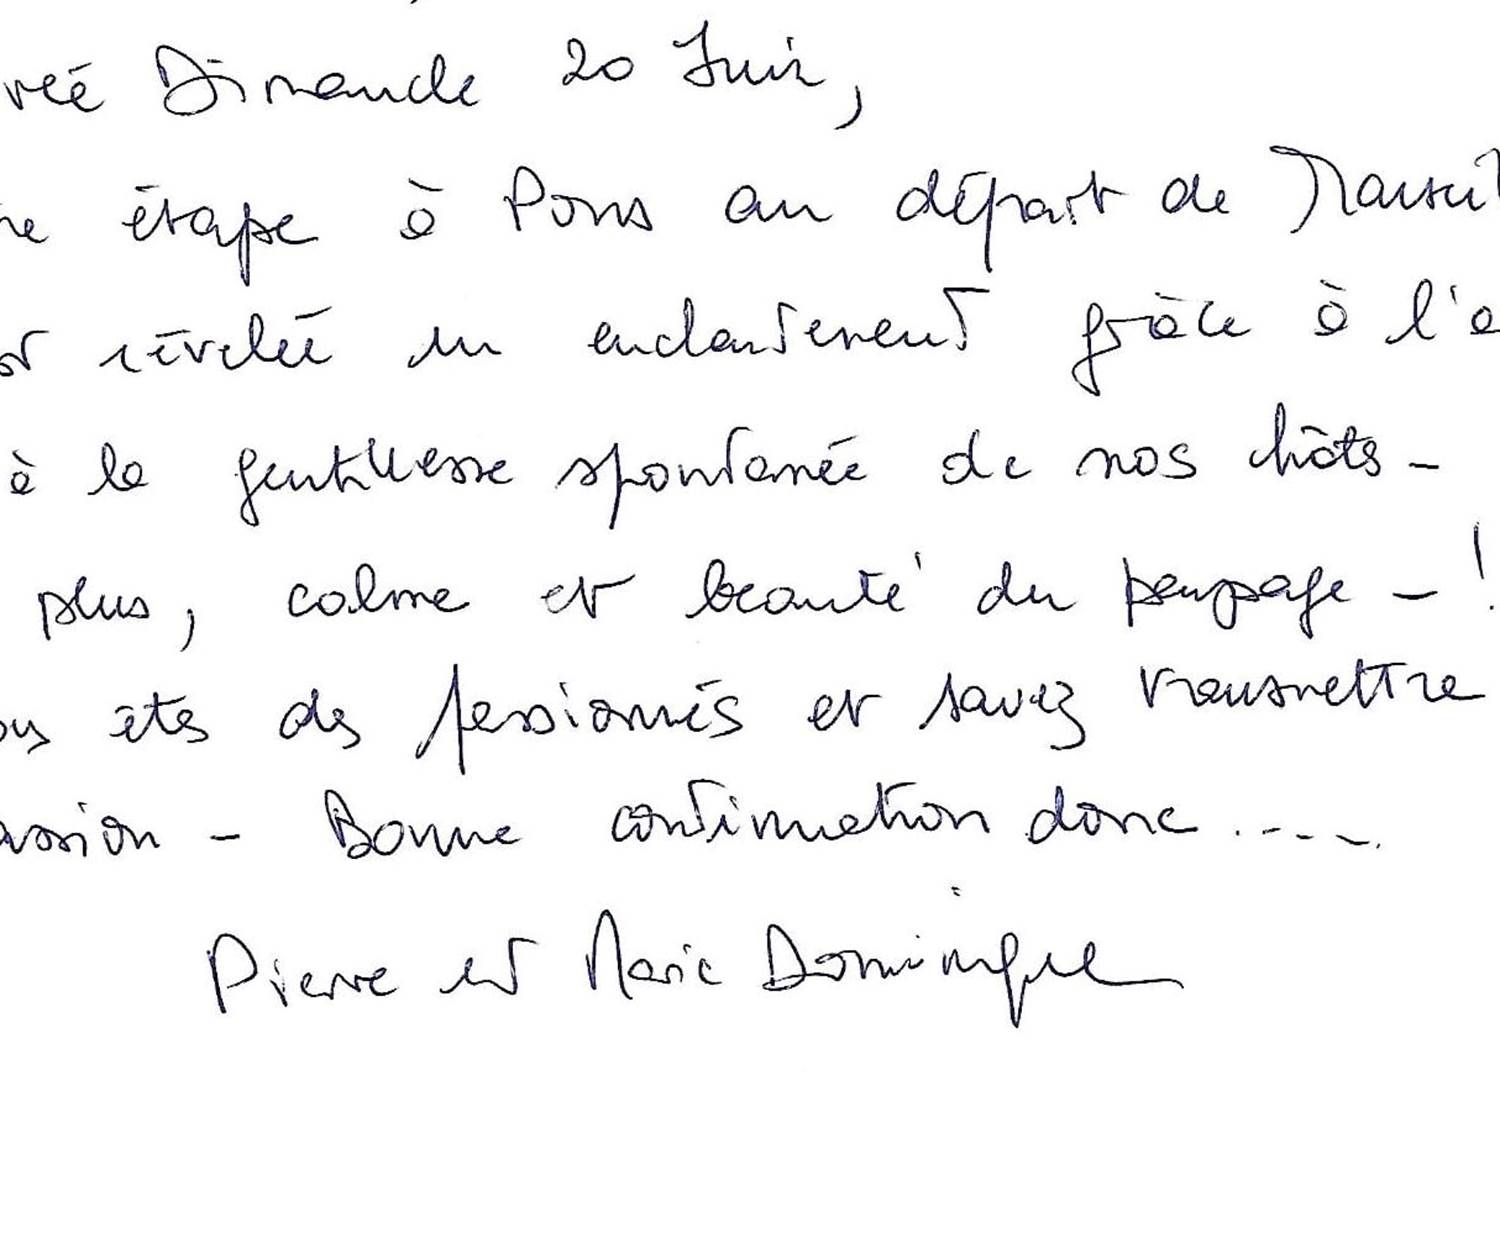 Dimanche 20 Juin,
étape à Pons au départ de Marseil
révélée un enchantement grâce à l'a
à la gentillesse spontanée de nos hôtes -
plus, calme et beauté du paysage - !
êtes des passionnés et savez transmettre
assion - Bonne continuation donc ....
Pierre et Marie Dominique